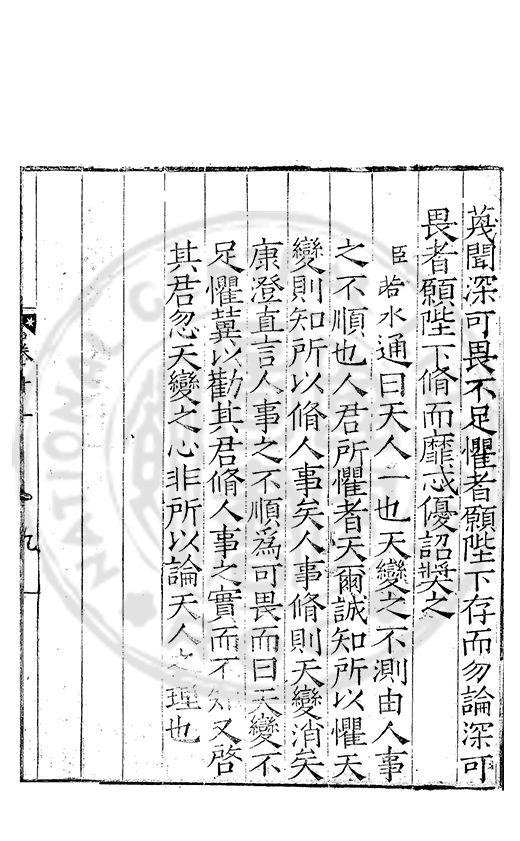 蔑聞深可畏不足懼者願陛下存而勿論深可
畏者願陛下脩而靡忒優詔奬之
臣若水通曰天人一也天變之不測由人事
之不順也人君所懼者天爾誠知所以懼天
變則知所以脩人事矣人事脩則天變消矣
康澄直言人事之不順爲可畏而曰天變不
足懼蓋以勸其君脩人事之實而不知又啓
其君忽天變之心非所以論天人之理也
卷十一
九
NATIONAL C